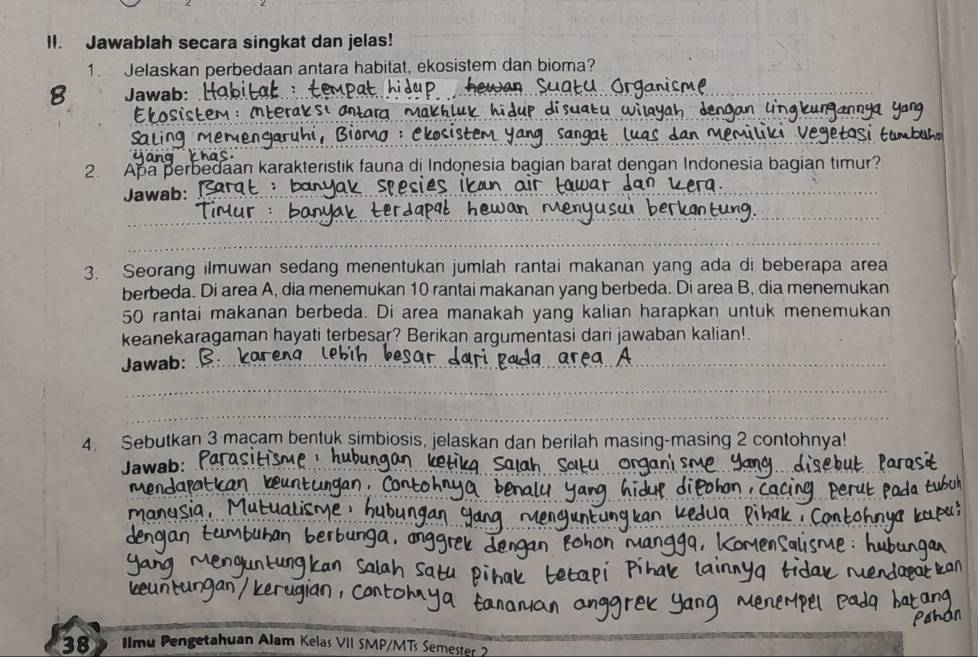 II. Jawablah secara singkat dan jelas!
1. Jelaskan perbedaan antara habitat, ekosistem dan bioma?
8 Jawab: Habitat : tempat hidup hewan suatu organisme
Ekosistem : interaksi antara makhluk hidup disuatu wilayah dengan lingkungannya yang
saling memengaruhi, Bioma : ekosistem yang sangat luas dan memiliki vegetasi tumbuha
yang khas.
2. Apa perbedaan karakteristik fauna di Indonesia bagian barat dengan Indonesia bagian timur?
Jawab: Barat : banyak spesies ikan air tawar dan kera.
Timur : banyak terdapat hewan menyusui berkantung.
3. Seorang ilmuwan sedang menentukan jumlah rantai makanan yang ada di beberapa area
berbeda. Di area A, dia menemukan 10 rantai makanan yang berbeda. Di area B, dia menemukan
50 rantai makanan berbeda. Di area manakah yang kalian harapkan untuk menemukan
keanekaragaman hayati terbesar? Berikan argumentasi dari jawaban kalian!.
Jawab: B. karena lebih besar dari pada area A
4. Sebutkan 3 macam bentuk simbiosis, jelaskan dan berilah masing-masing 2 contohnya!
Jawab: Parasitisme : hubungan ketika salah satu organisme yang disebut parasit
mendapatkan keuntungan, contohnya benalu yang hidup dipohon, cacing perut pada tubuh
manusia, Mutualisme : hubungan yang menguntungkan kedua pihak, contohnya kupu²
dengan tumbuhan berbunga, anggrek dengan pohon mangga, Komensalisme : hubungan
yang menguntungkan salah satu pihak tetapi pihak lainnya tidak mendapatkan
keuntungan/kerugian, contohnya tanaman anggrek yang menempel pada batang
pohan
38 Ilmu Pengetahuan Alam Kelas VII SMP/MTs Semester 2